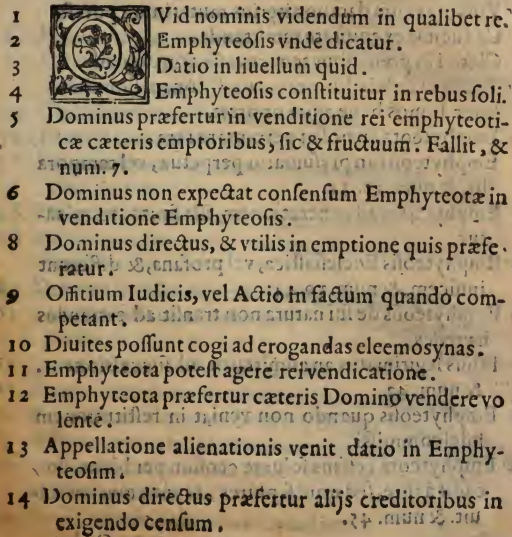 1 QVid nominis videndum in qualibet re.
2 Emphyteosis vnde dicatur.
3 Datio in liuellum quid.
4 Emphyteosis constituitur in rebus soli.
5 Dominus præfertur in venditione rei emphyteoti-
cæ cæteris emptoribus, sic & fructuum. Fallit, &
num. 7.
6 Dominus non expectat consensum Emphyteotæ in
venditione Emphyteosis.
8 Dominus directus, & vtilis in emptione quis præfe-
ratur.
9 Offitium Iudicis, vel Actio in factum quando com-
petant.
10 Diuites possunt cogi ad erogandas eleemosynas.
11 Emphyteota potest agere rei vendicatione.
12 Emphyteota præfertur cæteris Domino vendere vo
lente.
13 Appellatione alienationis venit datio in Emphy-
teosim.
14 Dominus directus præfertur alijs creditoribus in
exigendo censum.